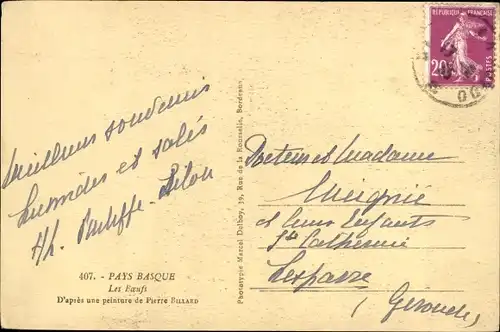 RÉPUBLIQUE FRANÇAISE
20c
POSTES
Meilleurs souvenirs
humides et salés
407. - PAYS BASQUE
Les Bœufs
D'après une peinture de Pierre BILLARD
Phototypie Marcel Delboy, 19, Rue de la Rousselle, Bordeaux
Docteur et Madame
Meignié
et leurs Enfants
Ste Catherine
Lesparre
(Gironde)